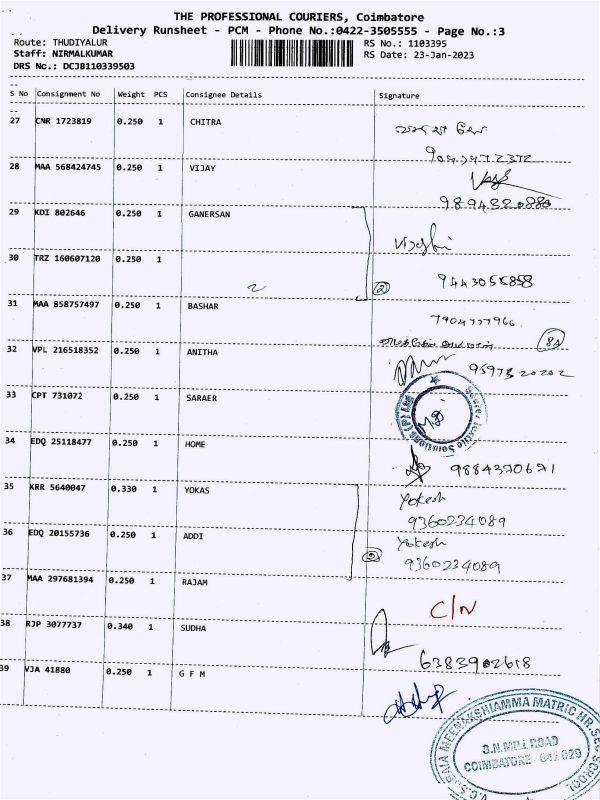 THE PROFESSIONAL COURIERS, Coimbatore
Delivery Runsheet - PCM - Phone No.:0422-3505555 - Page No.:3
Route: THUDIYALUR
RS No.: 1103395
Staff: NIRMALKUMAR
RS Date: 23-Jan-2023
DRS No.: DCJB110339503
S No Consignment No Weight PCS Consignee Details Signature
27 CNR 1723819 0.250 1 CHITRA
28 MAA 568424745 0.250 1 VIJAY
9894320884
29 KDI 802646 0.250 1 GANERSAN
30 TRZ 160607120 0.250 1
2
9443055858
31 MAA 858757497 0.250 1 BASHAR
7904777966
32 VPL 216518352 0.250 1 ANITHA
9597520202
33 CPT 731072 0.250 1 SARAER
34 EDQ 25118477 0.250 1 HOME
9884370671
35 KRR 5640047 0.330 1 YOKAS
Yokesh
9360234089
36 EDQ 20155736 0.250 1 ADDI
Yokesh
9360234089
37 MAA 297681394 0.250 1 RAJAM
C/N
38 RJP 3077737 0.340 1 SUDHA
6383902618
39 VJA 41880 0.250 1 G F M
RAJA MEENAKSHIAMMA MATRIC HR. SEC SCHOOL
S.N. MILL ROAD
COIMBATORE - 641 029